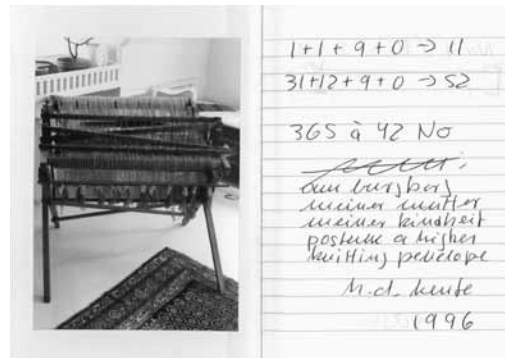 1+1+9+0 → 11
31+12+9+0 → 52
365 à 42 No
meiner mutter
meiner kindheit
a higher
knitting penelope
h.d. heute
1996